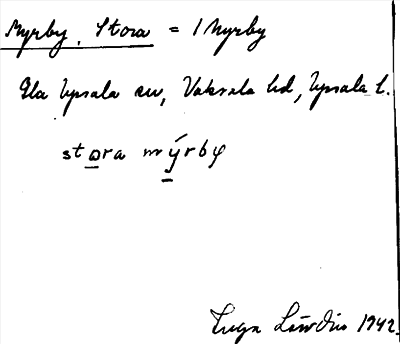 Myrby, Stora = 1 Myrby
Gla Upsala sn, Vaksala hd, Upsala l.
stora mýrby
Inga Lindin 1942.